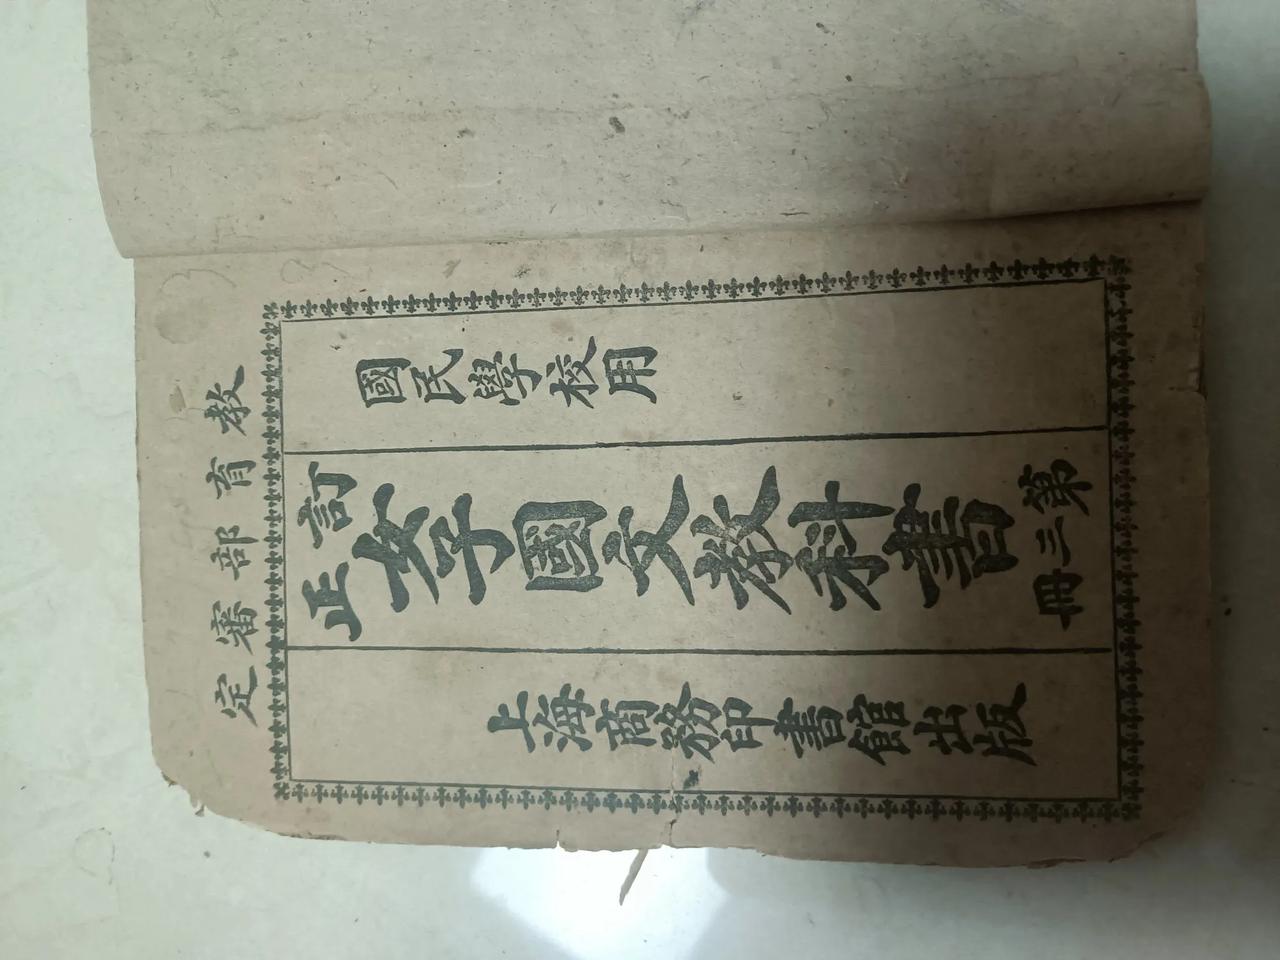 教育部審定
國民學校用
訂正女子國文教科書第三冊
上海商務印書館出版